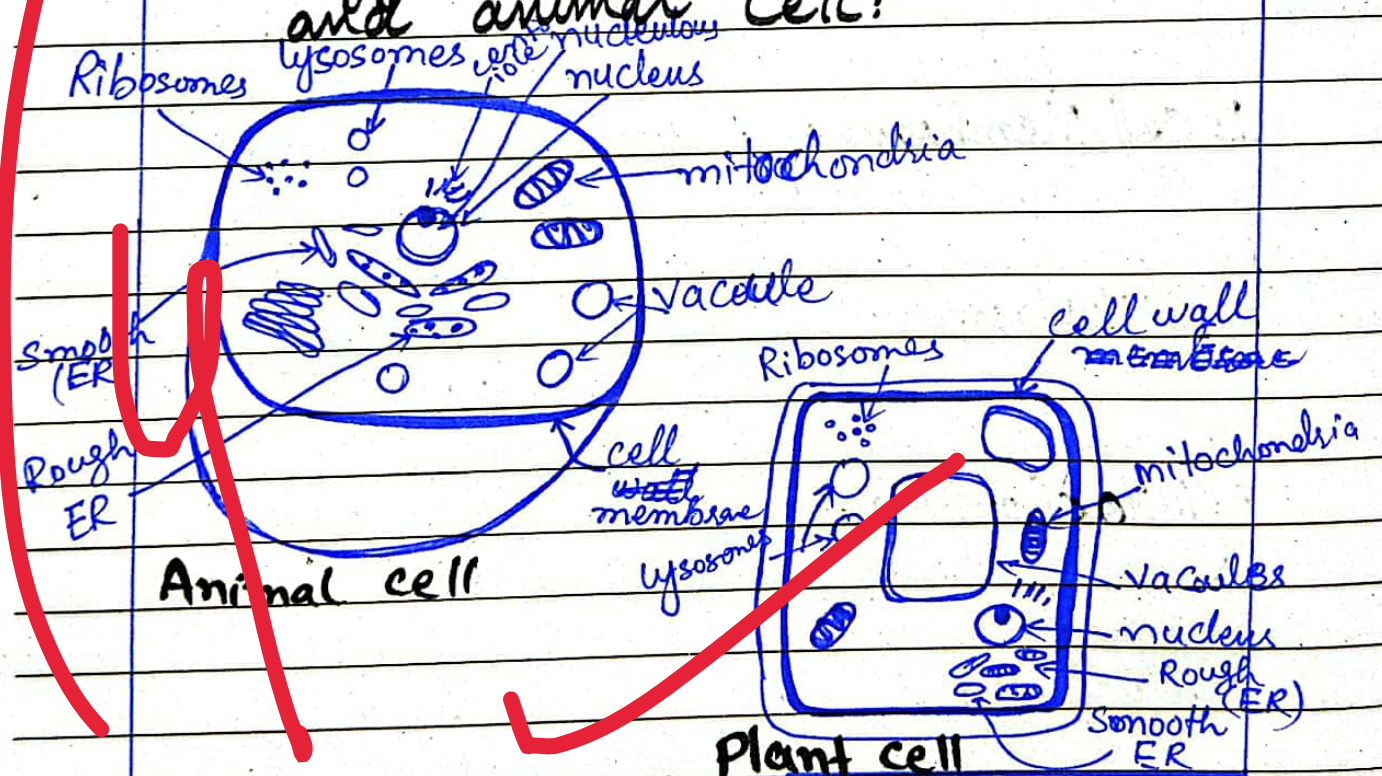 and animal cell?
lysosomes
nucleulous
Ribosomes
nucleus
mitochondria
vacoule
Smooth
(ER
Rough
ER
cell
wall
membrane
Animal cell
cell wall
membrane
Ribosomes
mitochondria
lysosomes
vacoules
nucleus
Rough
(ER)
Smooth
ER
Plant cell